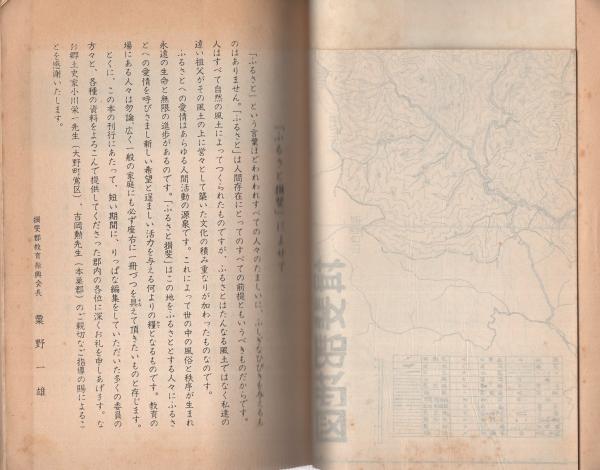 「ふるさと揖斐」によせて
「ふるさと」という言葉ほどわれわれすべての人々のたましいに、ふしぎなひびきを与えるも
のはありません。「ふるさと」は人間存在にとってのすべての前提ともいうべきものだからです。
人はすべて自然の風土によってつくられたものですが、ふるさとはたんなる風土ではなく私達の
遠い祖父がその風土の上に営々として築いた文化の積み重なりが加わったものなのです。
ふるさとへの愛情はあらゆる人間活動の源泉です。これによって世の中の風俗と秩序が生まれ
永遠の生命と無限の進歩があるのです。「ふるさと揖斐」はこの地をふるさととする人々にふるさ
とへの愛情を呼びさまし新しい希望と逞ましい活力を与える何よりの糧となるものです。教育の
場にある人々は勿論、広く一般の家庭にも必ず座右に一冊づつを具えて頂きたいものと存じます。
とくに、この本の刊行にあたって、短い期間に、りっぱな編集をしていただいた多くの委員の
方々と、各種の資料をよろこんで提供してくださった郡内の各位に深くお礼を申しあげます。な
お郷土史家小川栄一先生(大野町鶯区)、吉岡勲先生(本巣郡)のご親切なご指導の賜によるこ
とを感謝いたします。
揖斐郡教育振興会長 粟野一雄